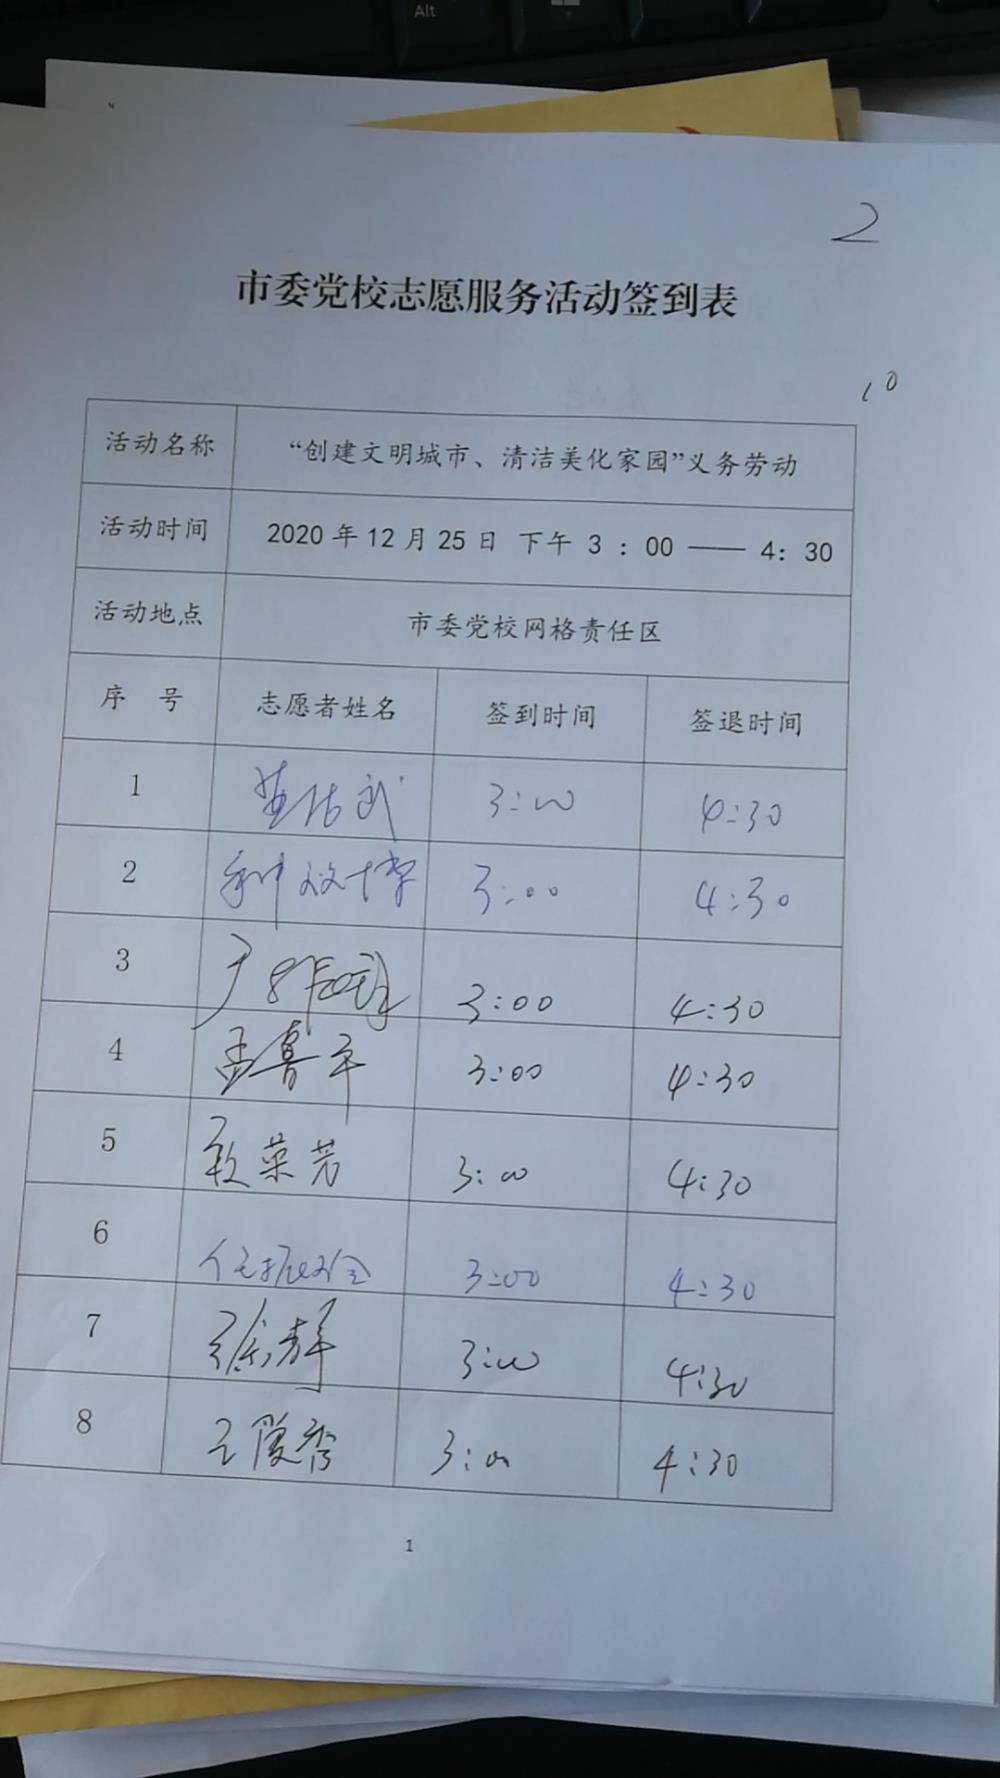 Alt
2
市委党校志愿服务活动签到表
10
活动名称 “创建文明城市、清洁美化家园”义务劳动
活动时间 2020 年 12 月 25 日 下午 3 : 00 —— 4: 30
活动地点 市委党校网格责任区
序 号 志愿者姓名 签到时间 签退时间
1 3:00 4:30
2 3:00 4:30
3 3:00 4:30
4 孟鲁平 3:00 4:30
5 3:00 4:30
6 3:00 4:30
7 3:00 4:30
8 3:00 4:30
1